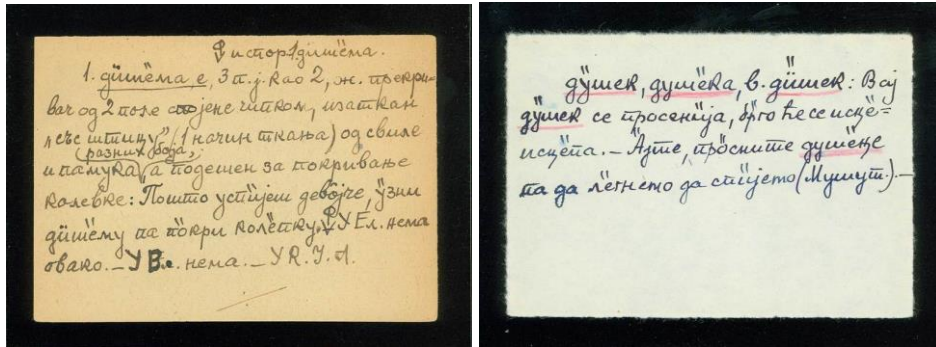 и истор. 1. дӥшёма.
1. дӥшёма, е, 3 п. ј. као 2, ж. прекри-
вач од 2 поле спојене чипком, изаткан
„сьс штицу” (1 начин ткања) од свиле
(разних боја,
и памука), а подешен за покривање
колевке: Пошто успӥјеш дево̏јче, у̏зни
дӥшёму па по̏кри коле̏пку. У Ел. нема
овако. – У Вл. нема. – У R. J. А.
ду̏шек, душе̏ка, в. ди̏шек: Вај
ду̏шек се просенија, брго ће се исце̏-
исце̏па. – А̏јте, про̏сните душе̏це
па да ле̏гнето да спи̏јето (Мушут.). –